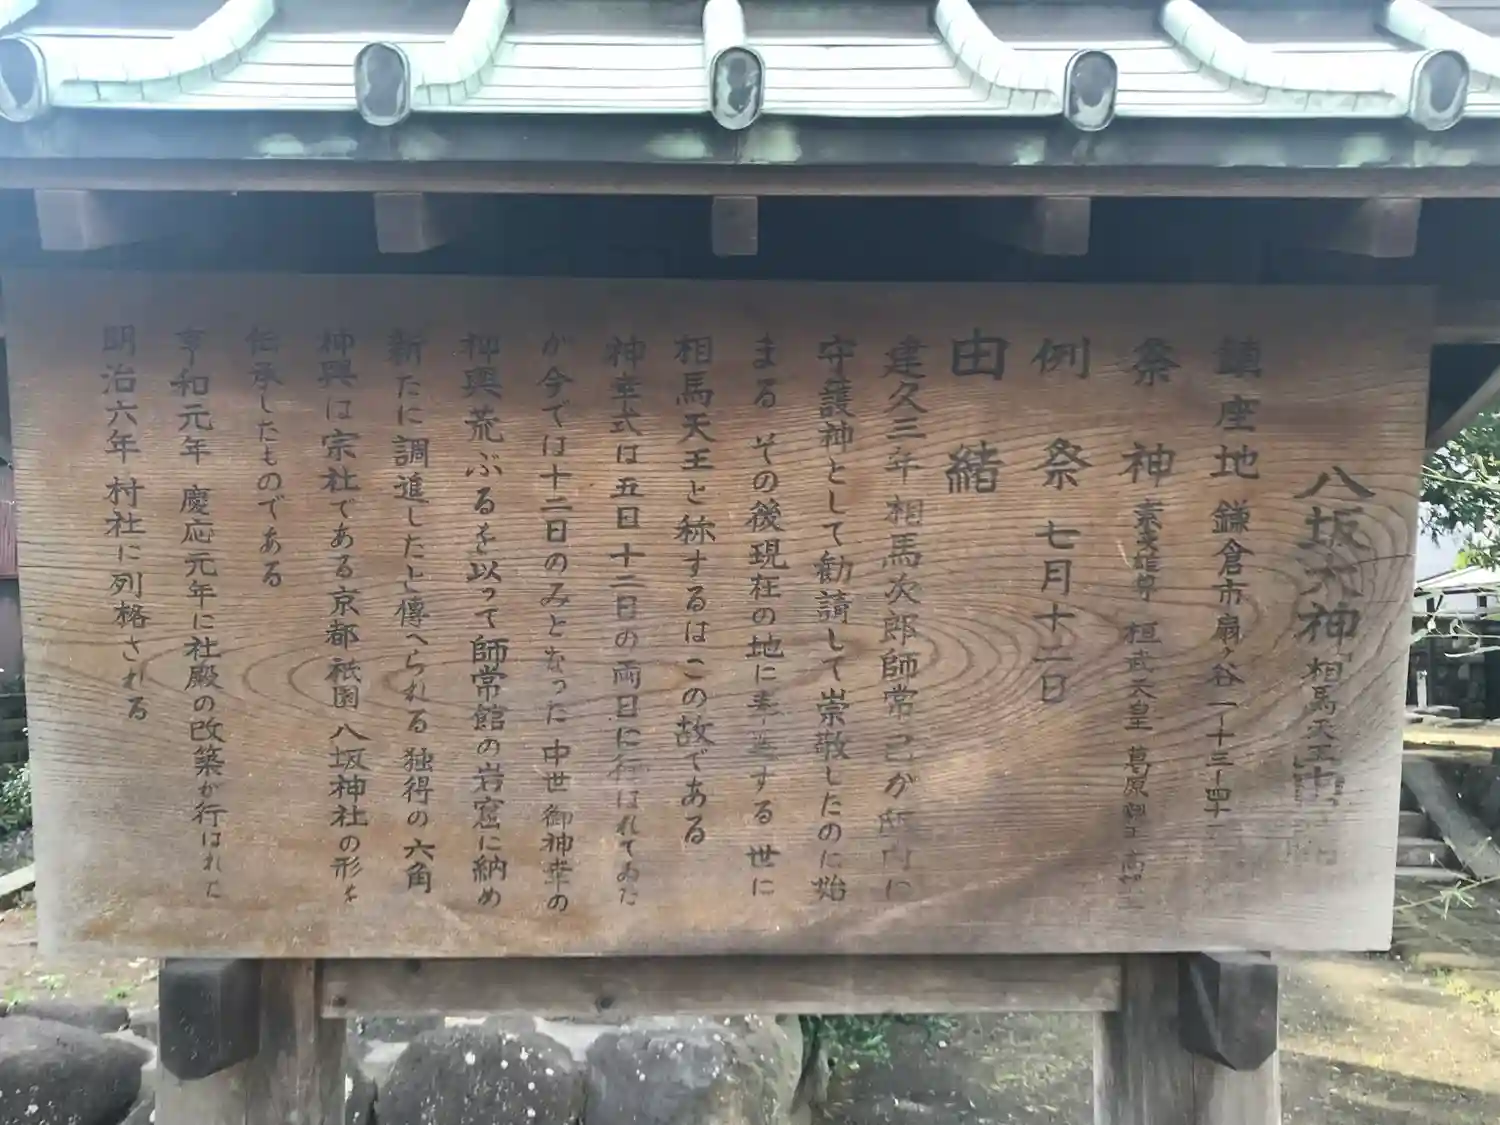 八坂大神 相馬天王
鎮座地 鎌倉市扇ヶ谷一ー十三ー四十
祭神 素戔雄尊 桓武天皇 葛原親王 高望王
例祭 七月十二日
由緒
建久三年 相馬次郎師常己が邸内に
守護神として勧請して崇敬したのに始
まる その後現在の地に奉遷する 世に
相馬天王と称するはこの故である
神幸式は五日十二日の両日に行はれてゐた
が今では十二日のみとなった 中世御神幸の
神輿荒ぶるを以って師常館の岩窟に納め
新たに調進したと傳へられる 独得の六角
神輿は宗社である京都祇園八坂神社の形を
伝承したものである
享和元年 慶応元年に社殿の改築が行はれた
明治六年村社に列格される